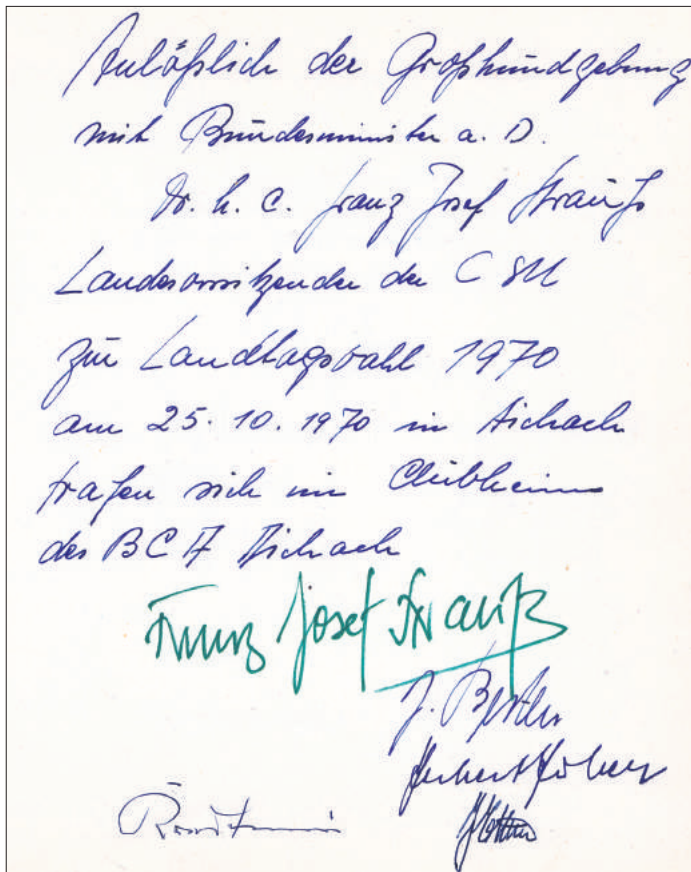 Anläßlich der Großkundgebung
mit Bundesminister a. D.
Dr. h. c. Franz Josef Strauß
Landesvorsitzender der CSU
zur Landtagswahl 1970
am 25. 10. 1970 in Aichach
trafen sich im Clubheim
des BCA Aichach
Franz Josef Strauß
J.